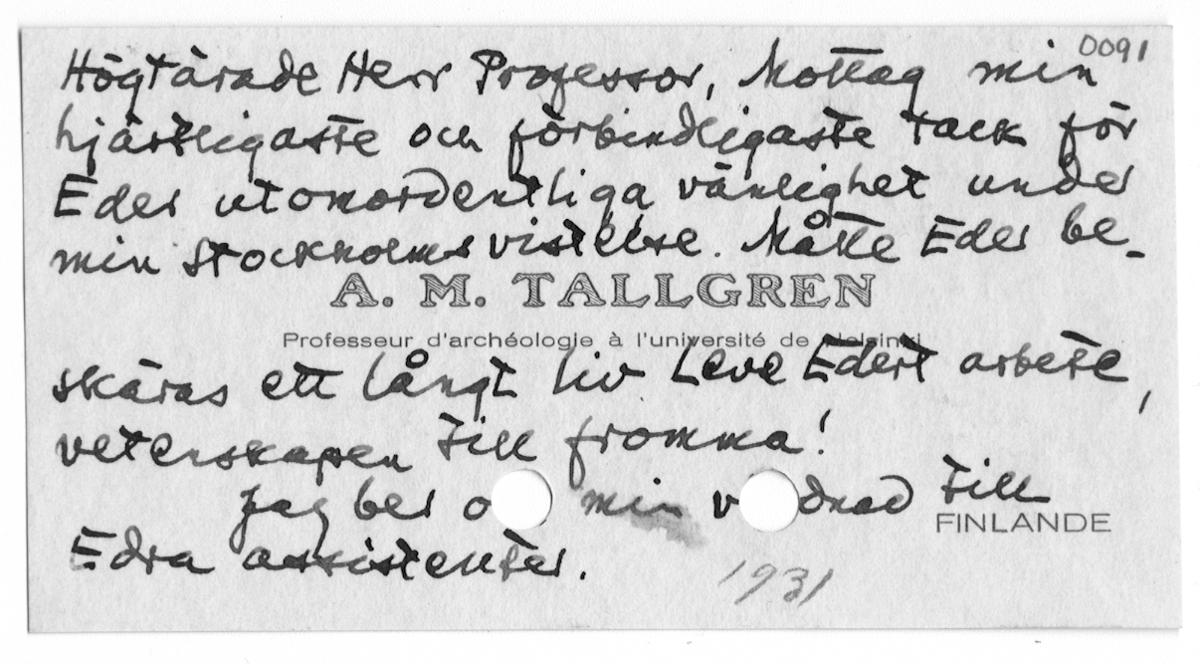 0091
Högtärade Herr Professor, Mottag min
hjärtligaste och förbindligaste tack för
Eder utomordentliga vänlighet under
min Stockholmsvistelse. Måtte Eder be-
A. M. TALLGREN
Professeur d'archéologie à l'université de Helsinki
skäras ett långt liv Leve Edert arbete,
vetenskapen till fromma!
Jag ber o min v dnad till
FINLANDE
Edra assistenter.
1931